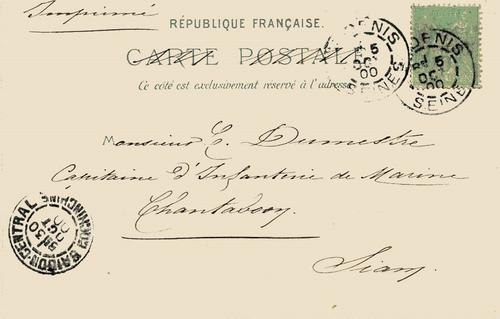 Imprimé
RÉPUBLIQUE FRANÇAISE.
CARTE POSTALE
Ce côté est exclusivement réservé à l'adresse
DENIS
SEINE
DENIS
SEINE
Monsieur C. Dumestre
Capitaine d'Infanterie de Marine
Chantaboon
Siam
SAIGON-CENTRAL
COCHINCHINE
30
OCT
00